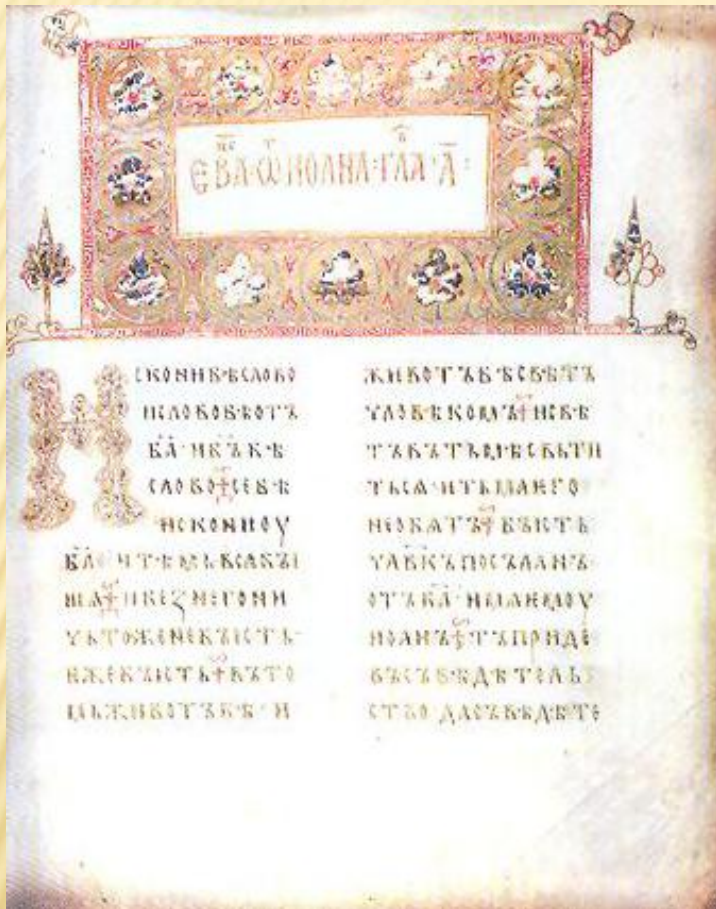 ЕВА · Ѿ ИОАНА · ГЛА · А ·
СКОНИ БѢ СЛОВО
И СЛОВО БѢ ОТЪ
БА · И БЪ БѢ
СЛОВО СЕ БѢ
ИСКОНИ ОУ
БА · И ТѢМЬ ВСѦ БЪІ
ШѦ И БЕЗ НЕГО НИ
ЧЬТОЖЕ НЕ БЪІСТЬ ·
ЕЖЕ БЪІСТЬ ВЪ ТО
МЬ ЖИВОТЪ БѢ · И
ЖИВОТЪ БѢ СВѢТЪ
ЧЛОВѢКОМЪ И СВѢ
ТЪ ВЪ ТЬМѢ СВЬТИ
ТЬСѦ · И ТЬМА ЕГО
НЕ ОБѦТЪ БЪІСТЬ
ЧЛВКЪ ПОСЪЛАНЪ ·
ОТЪ БА · ИМѦ ЕМОУ
ИОАНЪ ТЪ ПРИДЕ
ВЪ СЪВѢДѢТЕЛЬ
СТВО ДА СЪВѢДѢТЕ